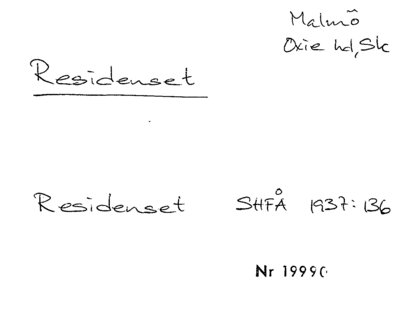 Malmö
Oxie hd, Sk
Residenset
Residenset SHFÅ 1937: 136
Nr 1999